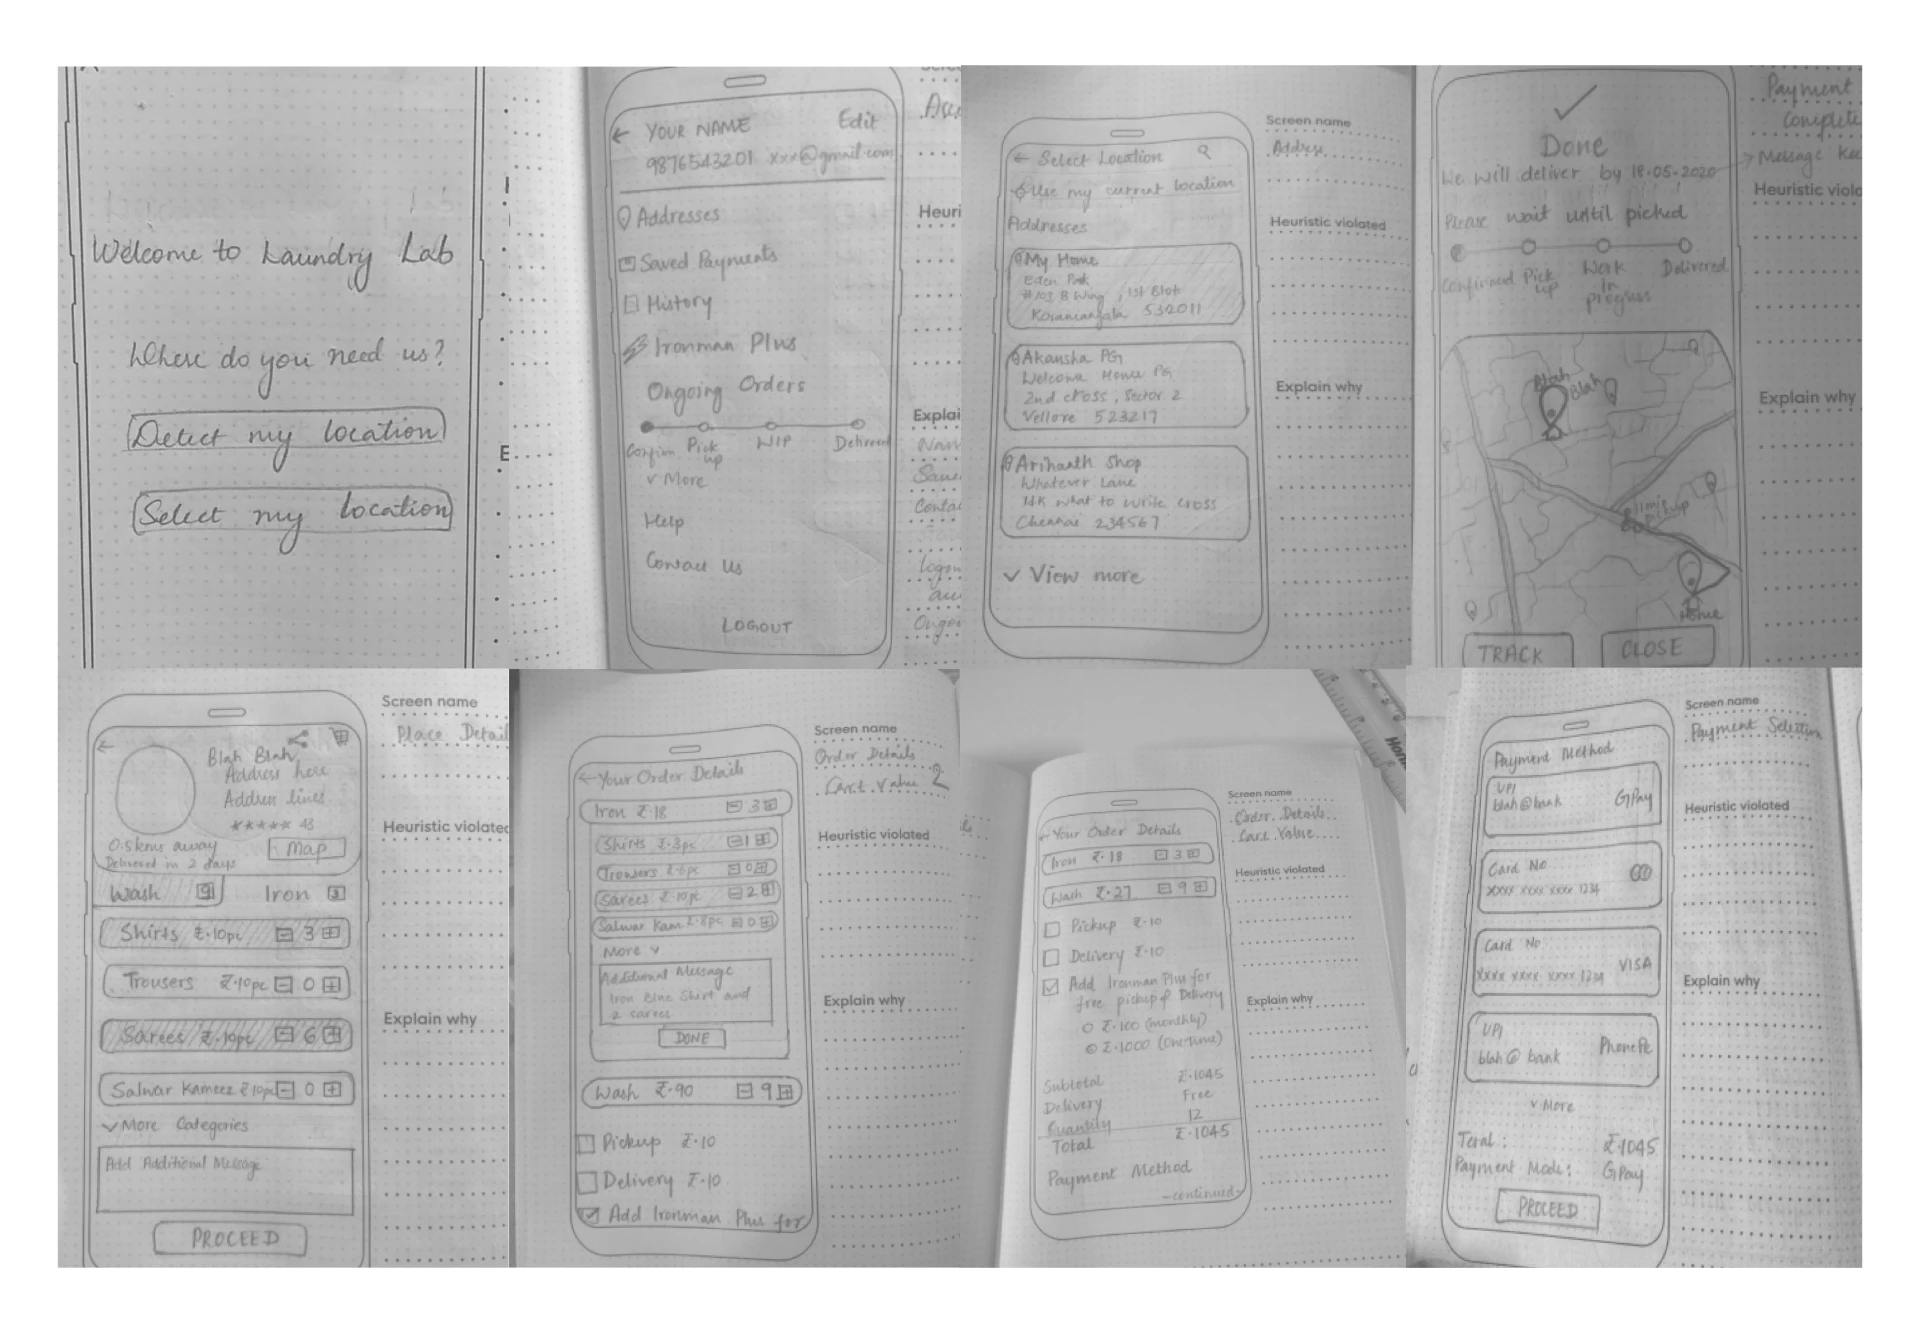 Welcome to Laundry Lab
Where do you need us?
Detect my location
Select my location
YOUR NAME Edit
9876543201 xxx@gmail.com
Addresses
Saved Payments
History
Ironman Plus
Ongoing Orders
Confirm Pick up WIP Delivered
v More
Help
Contact Us
LOGOUT
Heuri
Explai
Screen name
Address
Heuristic violated
Explain why
← Select Location
Use my current location
Addresses
My Home
Eden Park
#103 B Wing, 1st Block
Koramangala 532011
Akansha PG
Welcome Home PG
2nd cross, Sector 2
Vellore 523217
Arihanth Shop
Whatever Lane
Idk what to write cross
Chennai 234567
View more
Done
We will deliver by 18-05-2020
Please wait until picked
Confirmed Pick up Work In progress Delivered
Blah Blah
Home
TRACK CLOSE
Payment
Complete
Message
Heuristic viola
Explain why
Blah Blah
Address here
Address lines
43
0.5 kms away
Delivered in 2 days
Map
Wash 9 Iron 3
Shirts ₹.10pc - 3 +
Trousers ₹.10pc - 0 +
Sarees ₹.10pc - 6 +
Salwar Kameez ₹10pc - 0 +
More Categories
Add Additional Message
PROCEED
Screen name
Place Detail
Heuristic violated
Explain why
← Your Order Details
Iron ₹.18 - 3 +
Shirts ₹.3pc - 1 +
Trousers ₹.6pc - 0 +
Sarees ₹.10pc - 2 +
Salwar Kam ₹.8pc - 0 +
More v
Additional Message
Iron Blue Shirt and
2 sarees
DONE
Wash ₹.90 - 9 +
Pickup ₹.10
Delivery ₹.10
Add Ironman Plus for
Screen name
Order Details
Cart Value 2
Heuristic violated
Explain why
← Your Order Details
Iron ₹.18 - 3 +
Wash ₹.27 - 9 +
Pickup ₹.10
Delivery ₹.10
Add Ironman Plus for
free pickup & Delivery
₹.100 (monthly)
₹.1000 (One-time)
Subtotal ₹.1045
Delivery Free
Quantity 12
Total ₹.1045
Payment Method
-continued-
Screen name
Order Details
Cart Value
Heuristic violated
Explain why
Payment Method
UPI
blah@bank GPay
Card No
xxxx xxxx xxxx 1234
Card No
xxxx xxxx xxxx 1234 VISA
UPI
blah@bank PhonePe
v More
Total: ₹.1045
Payment Mode: GPay
PROCEED
Screen name
Payment Selection
Heuristic violated
Explain why